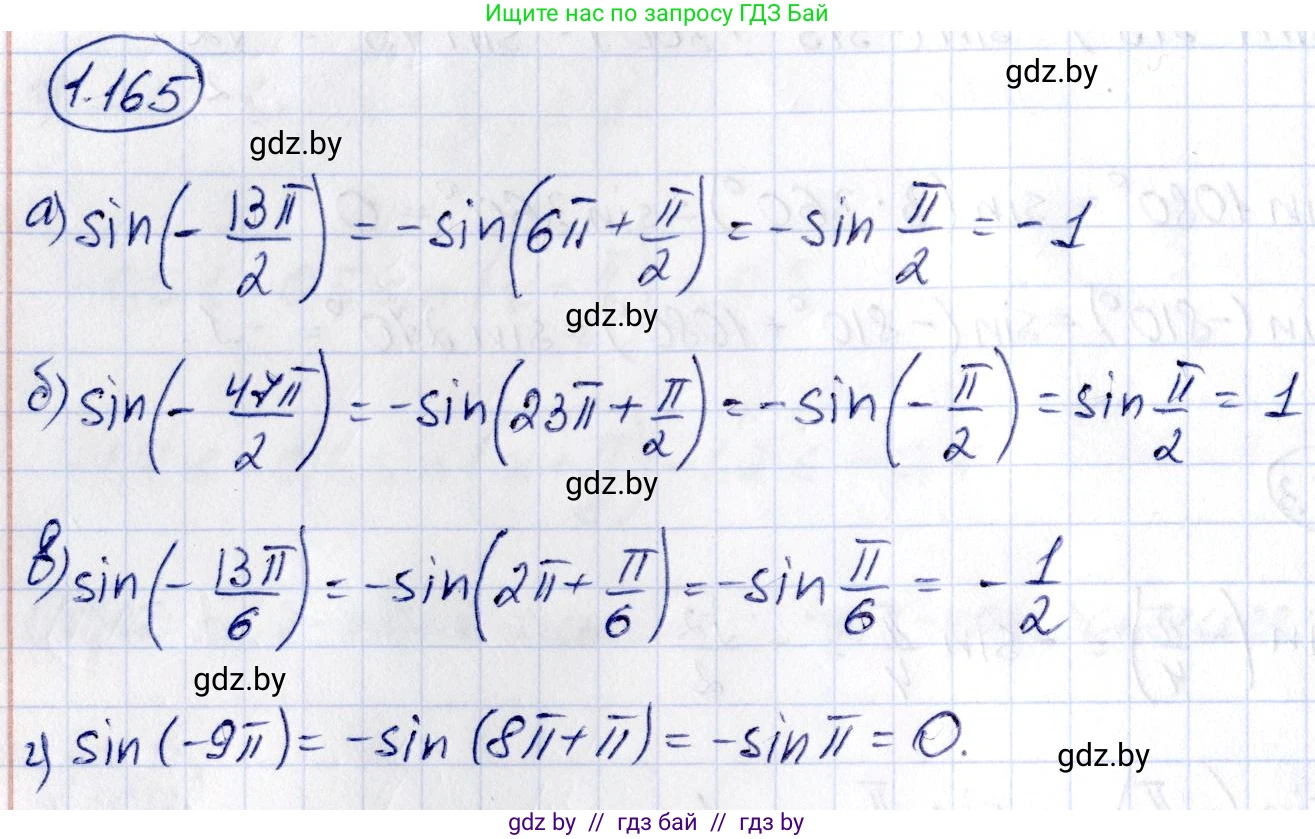 Ищите нас по запросу ГДЗ Бай
1.165
gdz.by
gdz.by
а) sin(-13π/2) = -sin(6π+π/2) = -sin π/2 = -1
gdz.by
б) sin(-47π/2) = -sin(23π+π/2) = -sin(-π/2) = sin π/2 = 1
gdz.by
в) sin(-13π/6) = -sin(2π+π/6) = -sin π/6 = -1/2
gdz.by
г) sin(-9π) = -sin(8π+π) = -sin π = 0.
gdz.by
gdz.by // гдз бай // гдз by